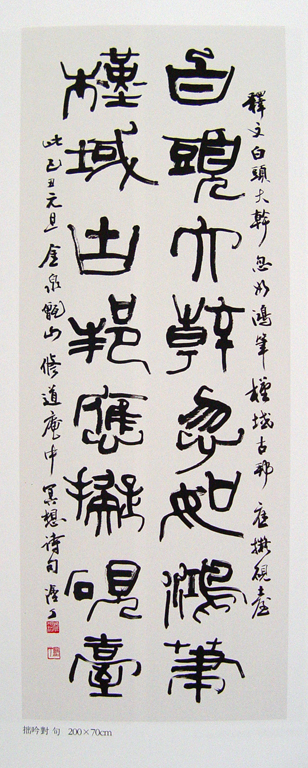 釋文白頭大幹忽如鴻筆檀域古邦應擬硯臺
白頭大幹忽如鴻筆
檀域古邦應擬硯臺
此己丑元旦金泉山修道庵中冥想詩句
拙吟對句 200×70cm